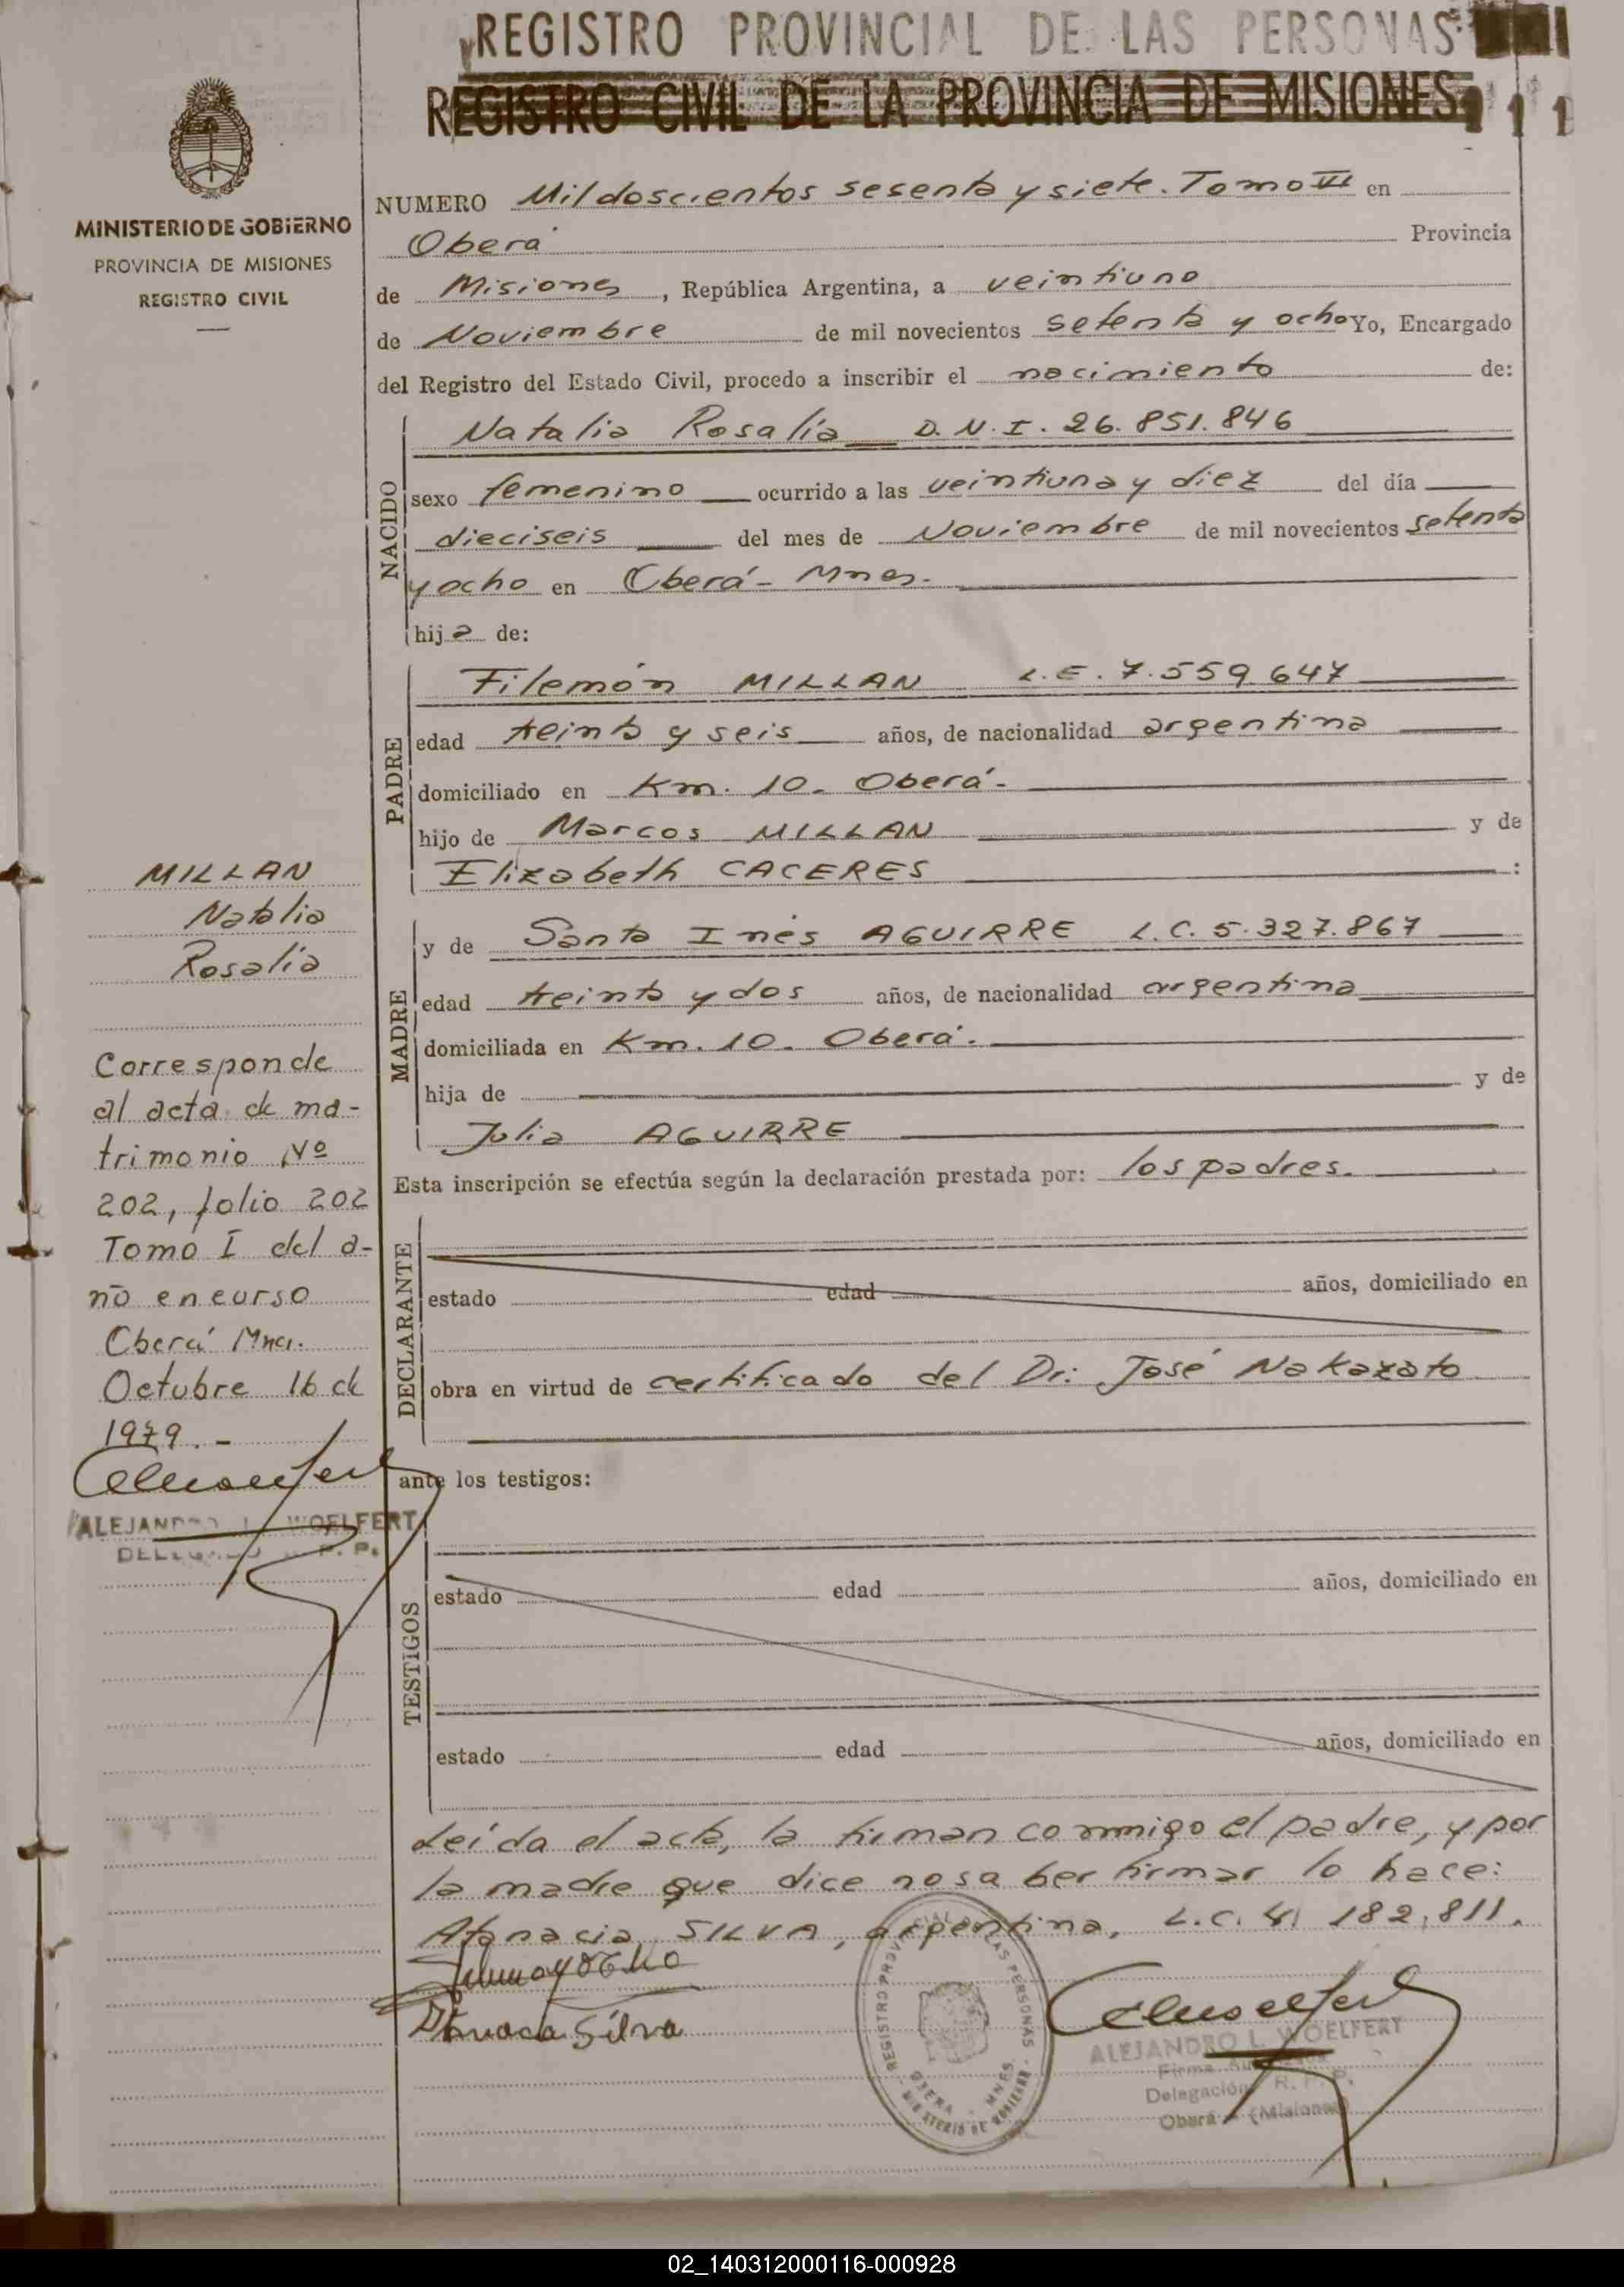 REGISTRO PROVINCIAL DE LAS PERSONAS
REGISTRO CIVIL DE LA PROVINCIA DE MISIONES
111
MINISTERIO DE GOBIERNO
PROVINCIA DE MISIONES
REGISTRO CIVIL
NUMERO Mil doscientos sesenta y siete. Tomo VI en
Oberá Provincia
de Misiones, República Argentina, a veintiuno
de Noviembre de mil novecientos setenta y ocho Yo, Encargado
del Registro del Estado Civil, procedo a inscribir el nacimiento de:
NACIDO
Natalia Rosalía D.N.I. 26.851.846
sexo femenino ocurrido a las veintiuna y diez del día
dieciseis del mes de Noviembre de mil novecientos setenta
y ocho en Oberá - Mnes.
hija de:
PADRE
Filemón MILLAN L.E. 7.559.647
edad treinta y seis años, de nacionalidad argentina
domiciliado en Km. 10. Oberá.
hijo de Marcos MILLAN y de
Elizabeth CACERES :
MADRE
y de Santa Inés AGUIRRE L.C. 5.327.867
edad treinta y dos años, de nacionalidad argentina
domiciliada en Km. 10. Oberá.
hija de y de
Julia AGUIRRE
Esta inscripción se efectúa según la declaración prestada por: los padres.
DECLARANTE
estado edad años, domiciliado en
obra en virtud de certificado del Dr: José Nakazato
ante los testigos:
TESTIGOS
estado edad años, domiciliado en
estado edad años, domiciliado en
Leída el acta, la firman conmigo el padre, y por
la madre que dice no saber firmar lo hace:
Atanacia SILVA, argentina, L.C. 4.182.811.
Silva
REGISTRO PROVINCIAL DE LAS PERSONAS
OBERA - MNES.
MINISTERIO DE GOBIERNO
ALEJANDRO L. WOELFERT
Firma Autorizada
Delegación R. P. P.
Oberá - (Misiones)
MILLAN
Natalia
Rosalía
Corresponde
al acta de ma-
trimonio Nº
202, folio 202
Tomo I del a-
ño en curso
Oberá Mnes.
Octubre 16 de
1979.-
ALEJANDRO L. WOELFERT
DELEGADO R. P. P.
02_140312000116-000928